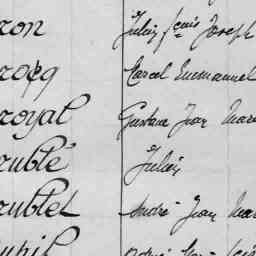 ron Julien Louis Joseph
rocq Marcel Emmanuel
royal Gustave Jean Mari
rublé Julien
rublet André Jean Mar
upil